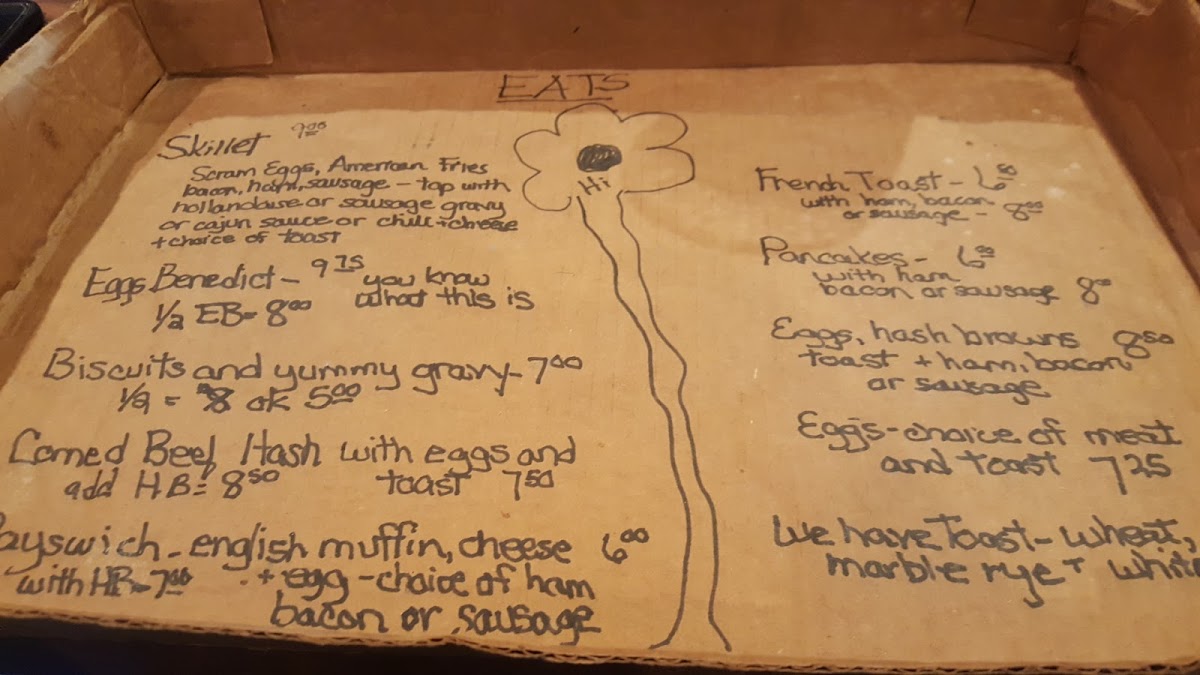 EATS
Skillet 9.00
Scram Eggs, American Fries
bacon, ham, sausage - top with
hollandaise or sausage gravy
or cajun sauce or chili + cheese
+ choice of toast
Eggs Benedict - 9.75 you know
what this is
1/2 EB = 8.00
Biscuits and yummy gravy - 7.00
1/2 = ok 5.00
Corned Beef Hash with eggs and
add HB = 8.50 toast 7.50
ayswich - english muffin, cheese 6.00
with HB - 7.00 + egg - choice of ham
bacon or sausage
Hi
French Toast - 6.50
with ham, bacon
or sausage - 8.00
Pancakes - 6.00
with ham
bacon or sausage 8.00
Eggs, hash browns 8.50
toast + ham, bacon
or sausage
Eggs - choice of meat
and toast 7.25
We have Toast - wheat,
marble rye + white